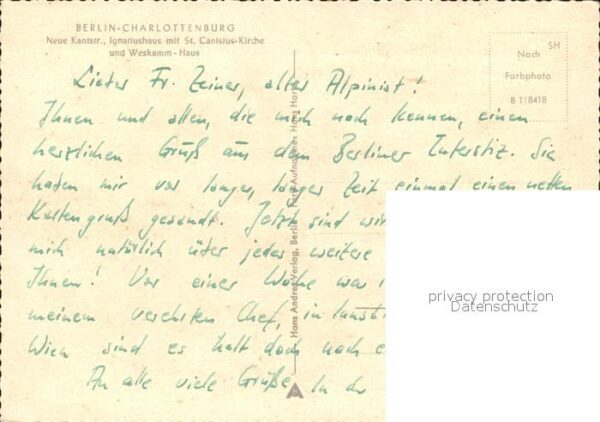 BERLIN-CHARLOTTENBURG
Neue Kantstr., Ignatiushaus mit St. Canisius-Kirche
und Weskamm-Haus
SH
Nach
Farbphoto
B 1/8418
Lieber Fr. Zeiner, alter Alpinist!
Ihnen und allen, die mich noch kennen, einen
herzlichen Gruß aus dem Berliner Interstiz. Sie
haben mir vor langer, langer Zeit einmal einen netten
Kartengruß gesandt. Jetzt sind wir
mich natürlich über jedes weitere
Ihnen! Vor einer Woche war
meinem verehrten Chef, in
Wien sind es halt doch noch
An alle viele Grüße In
Hans Andres Verlag, Berlin
Farb-Aufnahme: Hans Hartz
privacy protection
Datenschutz